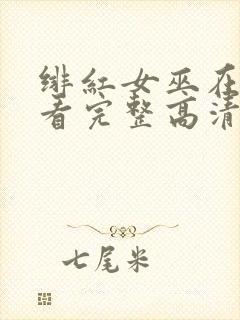 绯红女巫在
看完整高清
七尾米